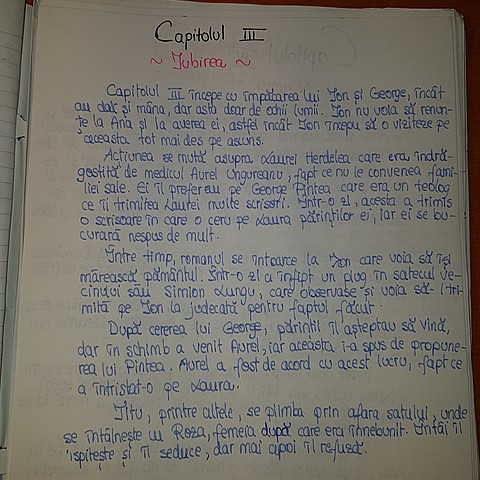 Capitolul III
~ Iubirea ~
Capitolul III începe cu împăcarea lui Ion și George, încât
au dat și mâna, dar asta doar de ochii lumii. Ion nu voia să renun-
țe la Ana și la averea ei, astfel încât Ion începu să o viziteze pe
aceasta tot mai des pe asuns.
Acțiunea se mută asupra Laurei Herdelea care era îndră-
gostită de medicul Aurel Ungureanu, fapt ce nu le convenea fami-
liei sale. Ei îl preferau pe George Pintea care era un teolog
ce îi trimitea Laurei multe scrisori. Într-o zi, acesta a trimis
o scrisoare în care o cerea pe Laura părinților ei, iar ei se bu-
curară nespus de mult.
Între timp, romanul se întoarce la Ion care voia să își
mărească pământul. Într-o zi a înfipt un plug în satecul ve-
cinului său Simion Lungu, care observase și voia să-l tri-
mită pe Ion la judecată pentru faptul făcut.
După cererea lui George, părinții îl așteptau să vină,
dar în schimb a venit Aurel, iar aceasta i-a spus de propune-
rea lui Pintea. Aurel a fost de acord cu acest lucru, fapt ce
a întristat-o pe Laura.
Titu, printre altele, se plimba prin afara satului, unde
se întâlnește cu Roza, femeia după care era înnebunit. Întâi îl
ispitește și îl seduce, dar mai apoi îl refuză.